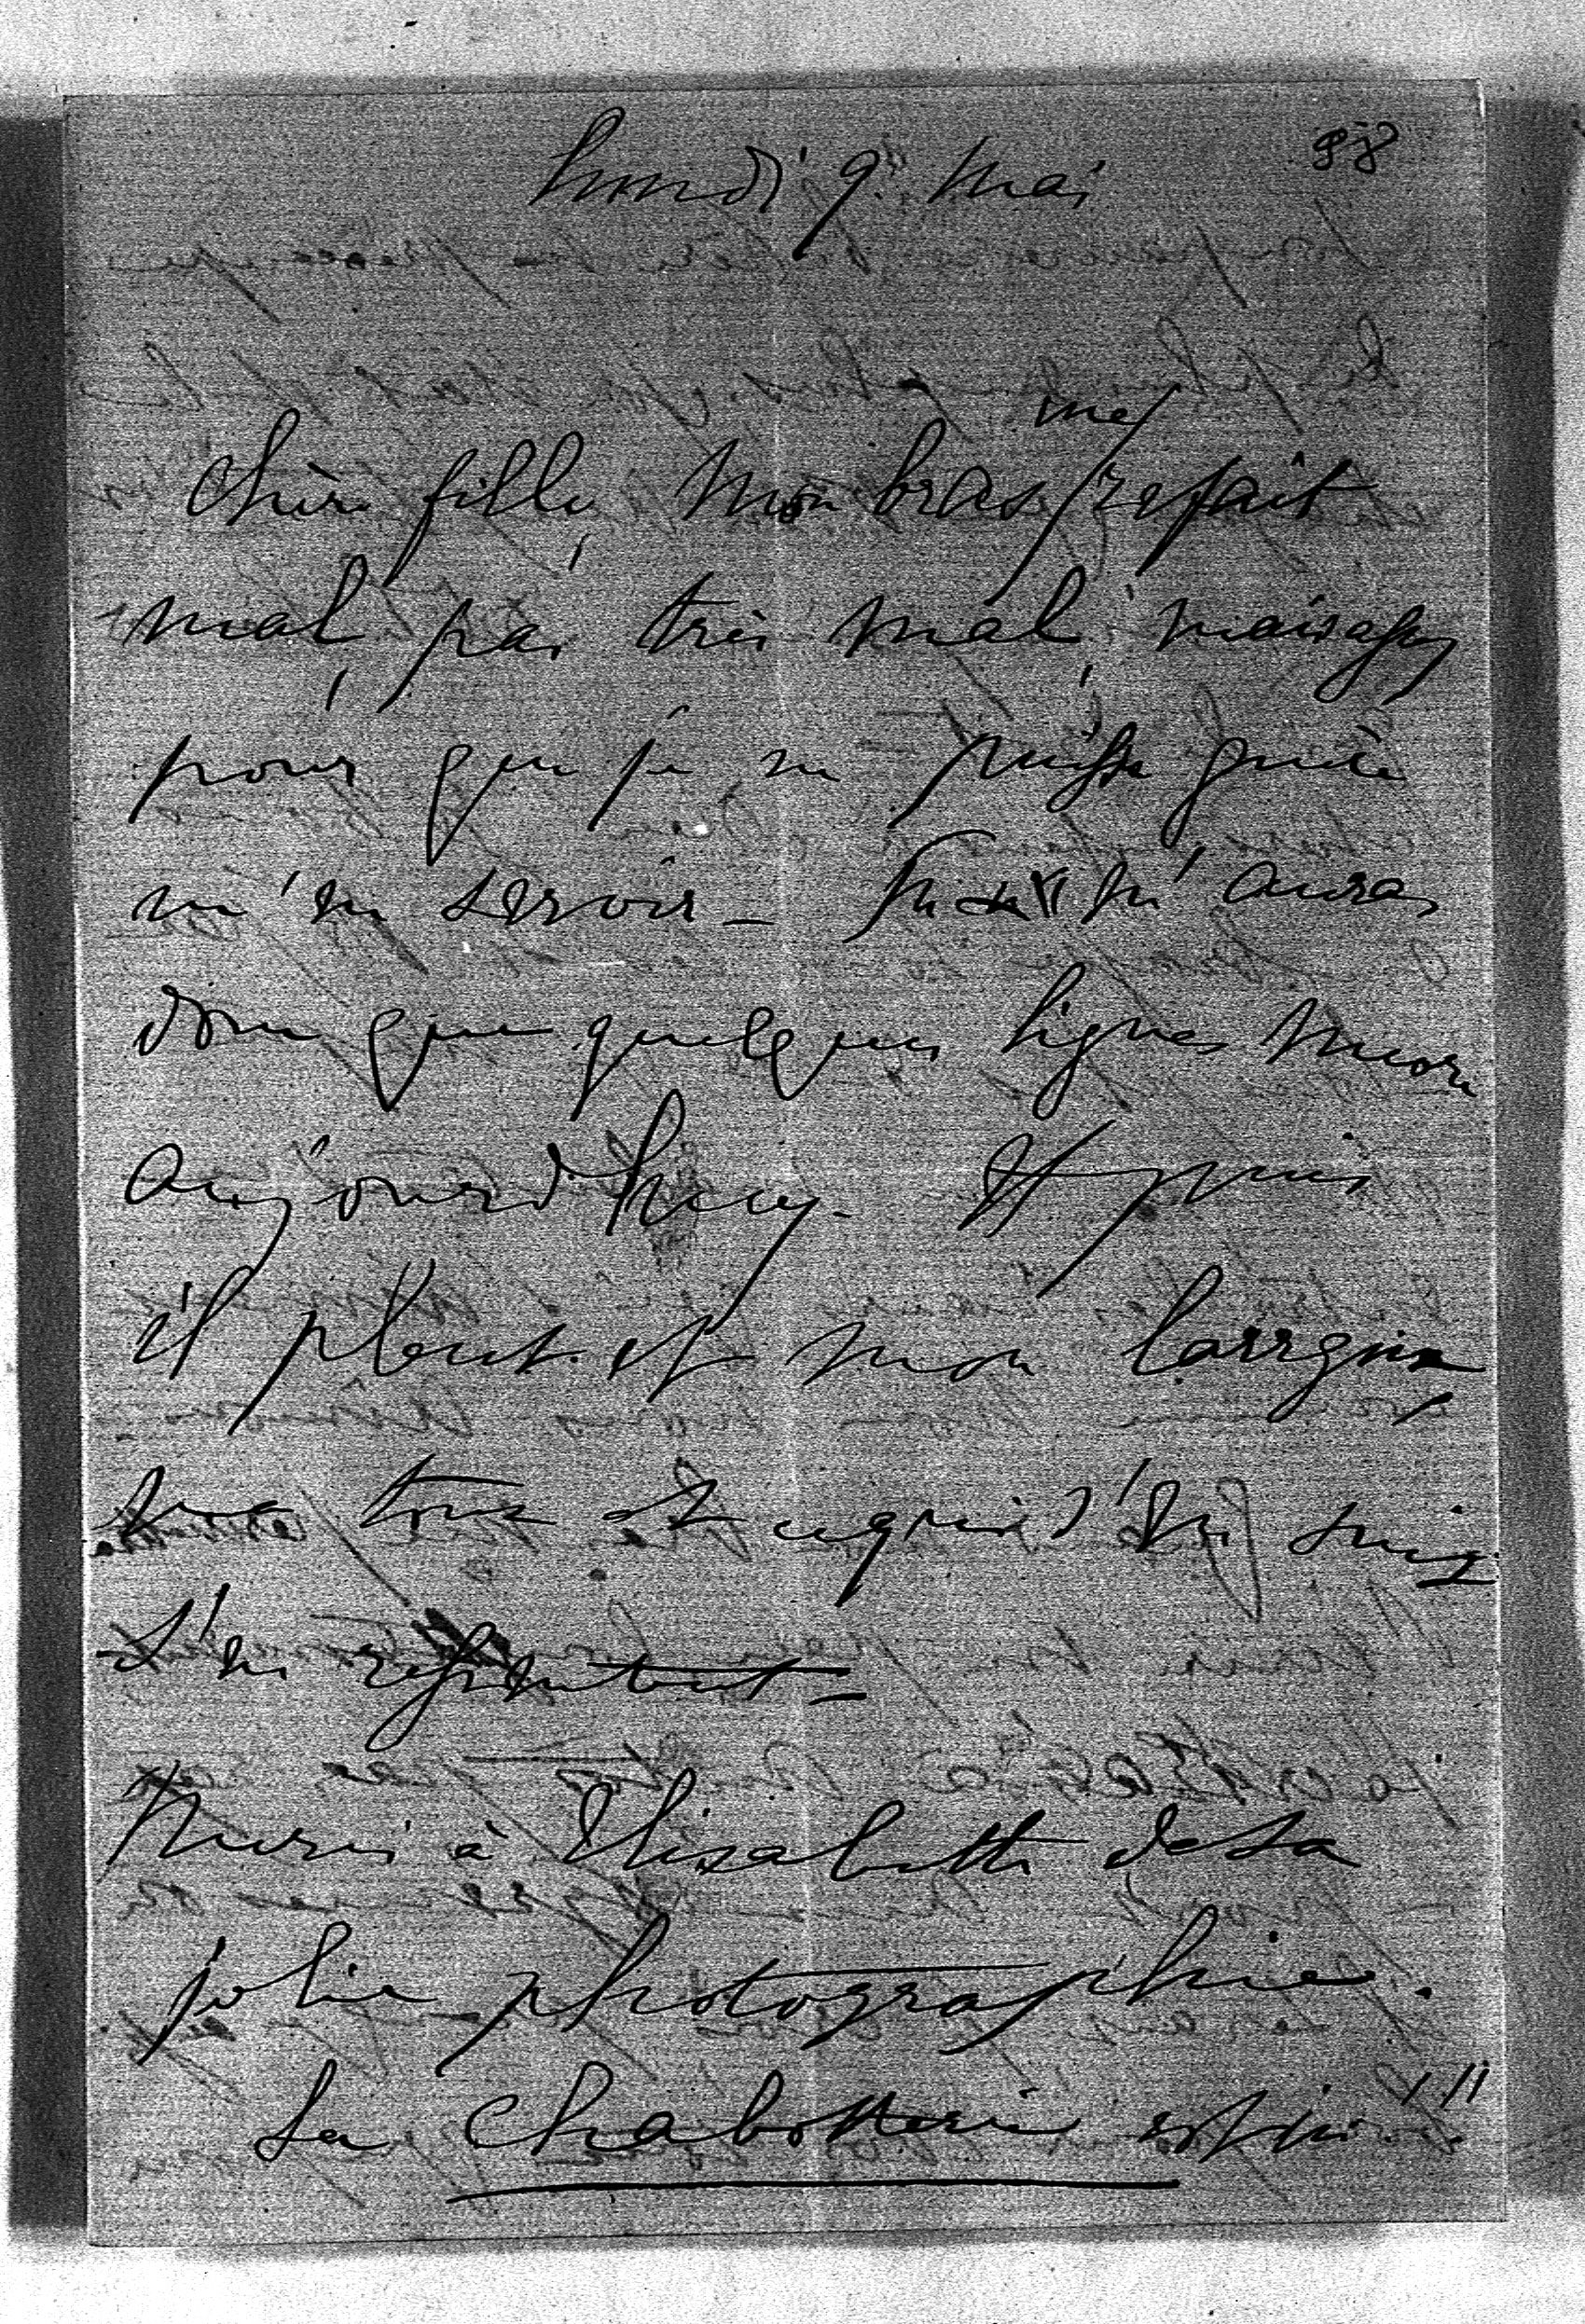 98
Lundi 9 Mai
Chère fille, mon bras me refait
mal, pas très mal, mais assez
pour que je ne puisse guère
m'en servir - Tu n'auras
donc que quelques lignes encore
aujourd'huy. Et puis
il pleut et mon larynx,
ma toux et
s'en ressentent -
Merci à Elisabeth de sa
jolie photographie.
La Chabotterie est